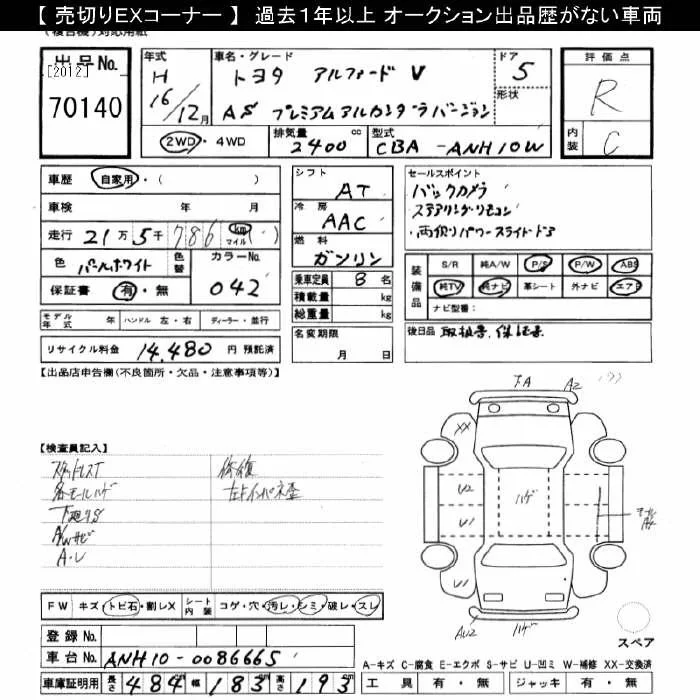 【 売切りEXコーナー 】 過去1年以上 オークション出品歴がない車両
(複合機)対応用紙
出品No.
[2012]
70140
年式
H
16/12月
車名・グレード
トヨタ アルファード V
AS プレミアムアルカンターラバージョン
ドア
5
形状
評価点
R
内装
C
2WD・4WD
排気量
2400 cc
型式
CBA -ANH10W
車歴
自家用・( )
車検 年 月
走行 21万5千786 km マイル ( )
色
パールホワイト
色替
カラーNo.
042
保証書 有・無
モデル年式
ハンドル 左・右
ディーラー・並行
リサイクル料金 14,480 円 預託済
シフト
AT
冷房
AAC
燃料
ガソリン
乗車定員 8 名
積載量 kg
総重量 kg
名変期限
月 日
セールスポイント
バックカメラ
ステアリングリモコン
両側パワースライドドア
装備品
S/R 純A/W P/S P/W ABS
純TV 純ナビ 革シート 外ナビ エアB
ナビ型番:
後日品 取扱書、保証書
【出品店申告欄(不良箇所・欠品・注意事項等)】
【検査員記入】
各モールハゲ
下廻りS
A/Wサビ
A・U
修復
左トインパネ歪
下A
A2
XX
U2
U1
U1
AU2
ハゲ
ハゲ
モール
スペア
FW キズ・トビ石・割レX
シート内装
コゲ・穴・汚レ・シミ・破レ・スレ
登録No.
車台No. ANH10-0086665
車庫証明用 長さ 484 幅 183 高さ 193
A-キズ C-腐食 E-エクボ S-サビ U-凹ミ W-補修 XX-交換済
工具 有・無 ジャッキ 有・無